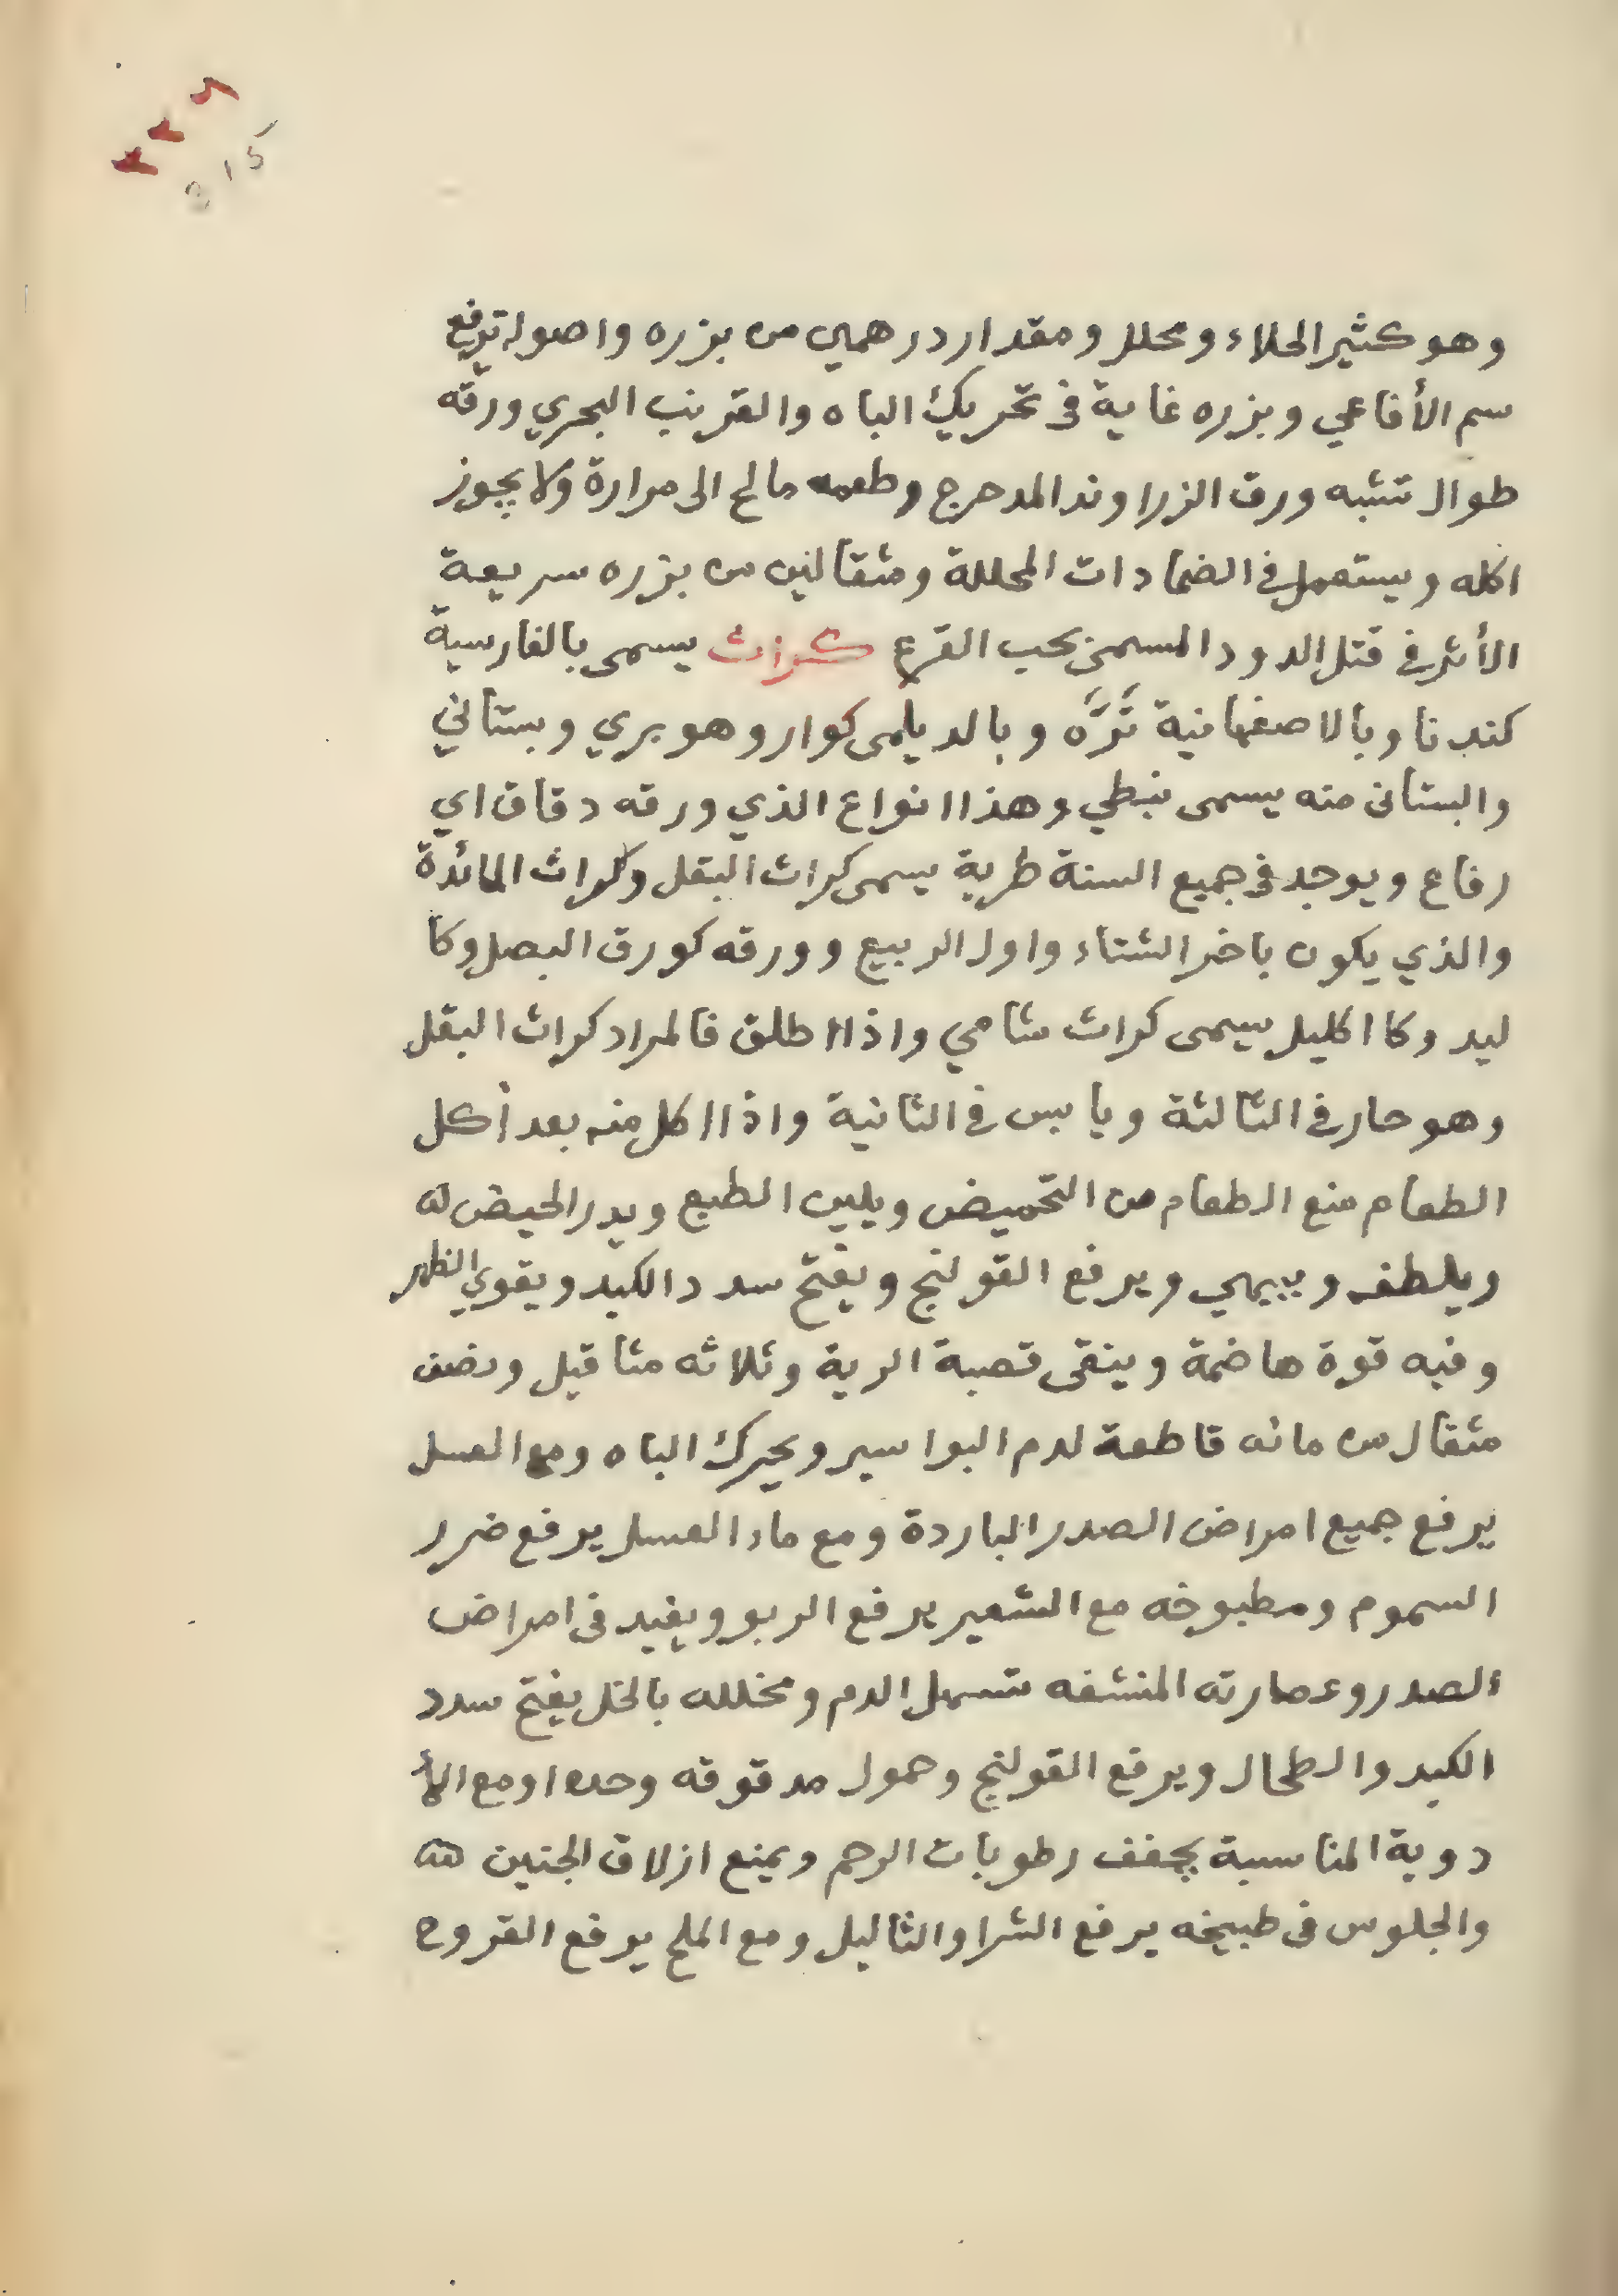 وهو كثير الجلاء ومحلل ومقدار درهمين من بزره واصوله ترفع
سم الأفاعي وبزره غاية في تحريك الباه والقرنب البحري ورقه
طوال تشبه ورق الزراوند المدحرج وطعمه مالح الى مرارة ولا يجوز
اكله ويستعمل في الضمادات المحللة ومثقالين من بزره سريعة
الأثر في قتل الدود المسمى بحب القرع كراث يسمى بالفارسية
كندنا وبالاصفهانية تَرَّه وبالديلمى كوار وهو بري وبستاني
والبستانى منه يسمى نبطي وهذا انواع الذي ورقه دقاق اي
رفاع ويوجد في جميع السنة طرية يسمى كراث البقل وكراث المائدة
والذي يكون باخر الشتاء واول الربيع وورقه كورق البصل وكا
ليد وكا اكليل يسمى كراث شامي واذا اطلق فالمراد كراث البقل
وهو حار في الثالثة ويابس في الثانية واذا اكل منه بعد أكل
الطعام منع الطعام من التحميض ويلين الطبع ويدر الحيض له
ويلطف ويبهي ويرفع القولنج ويفتح سدد الكبد ويقوي الظهر
وفيه قوة هاضمة وينقى قصبة الرية وثلاثه مثاقيل ونصف
مثقال من مائه قاطعة لدم البواسير ويحرك الباه ومع العسل
يرفع جميع امراض الصدر الباردة ومع ماء العسل يرفع ضرر
السموم ومطبوخه مع الشعير يرفع الربو ويفيد في امراض
الصدر وعصارته المنشفه تسهل الدم ومخلله بالخل يفتح سدد
الكبد والطحال ويرفع القولنج وحمول مدقوقه وحده او مع الأ
دوية المناسبة يجفف رطوبات الرحم ويمنع ازلاق الجنين
والجلوس في طبيخه يرفع الشرا والثاليل ومع الملح يرفع القروح